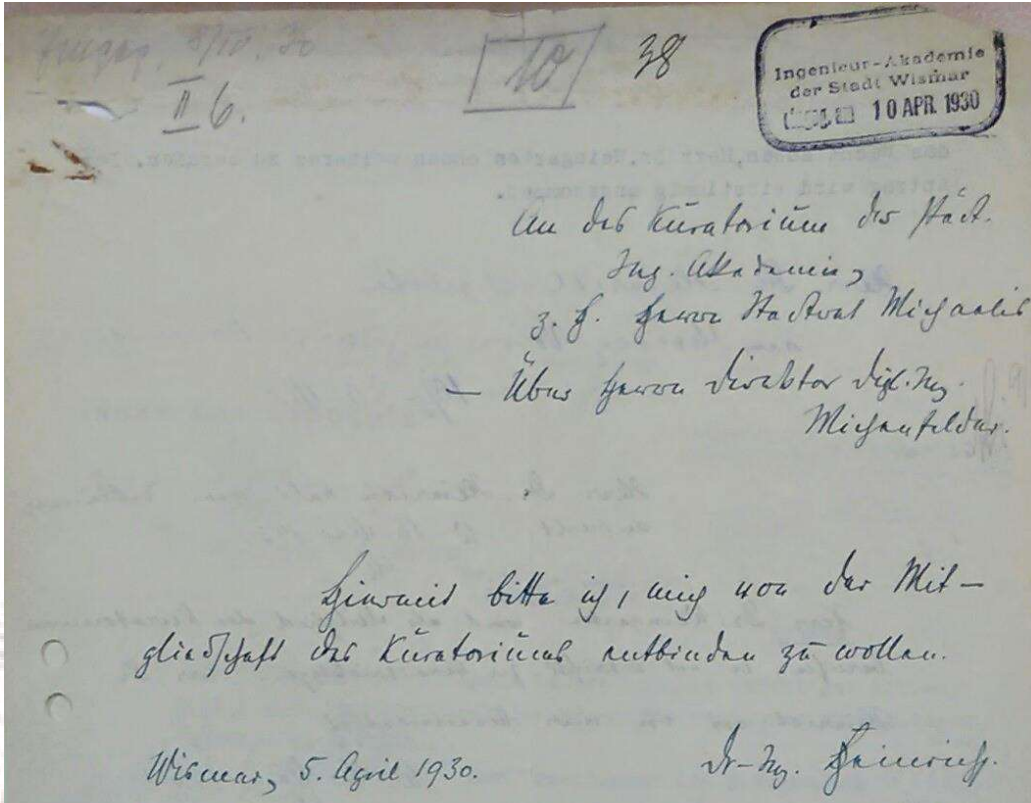 10
38
II 6.
Ingenieur-Akademie
der Stadt Wismar
10 APR. 1930
An das Kuratorium der städt.
Ing. Akademie,
z. H. Herrn Stadtrat Michaelis
— Über Herrn Direktor Dipl. Ing.
Michenfelder.
Hiermit bitte ich, mich von der Mit-
gliedschaft des Kuratoriums entbinden zu wollen.
Wismar, 5. April 1930.
Dr-Ing. Heinrich.